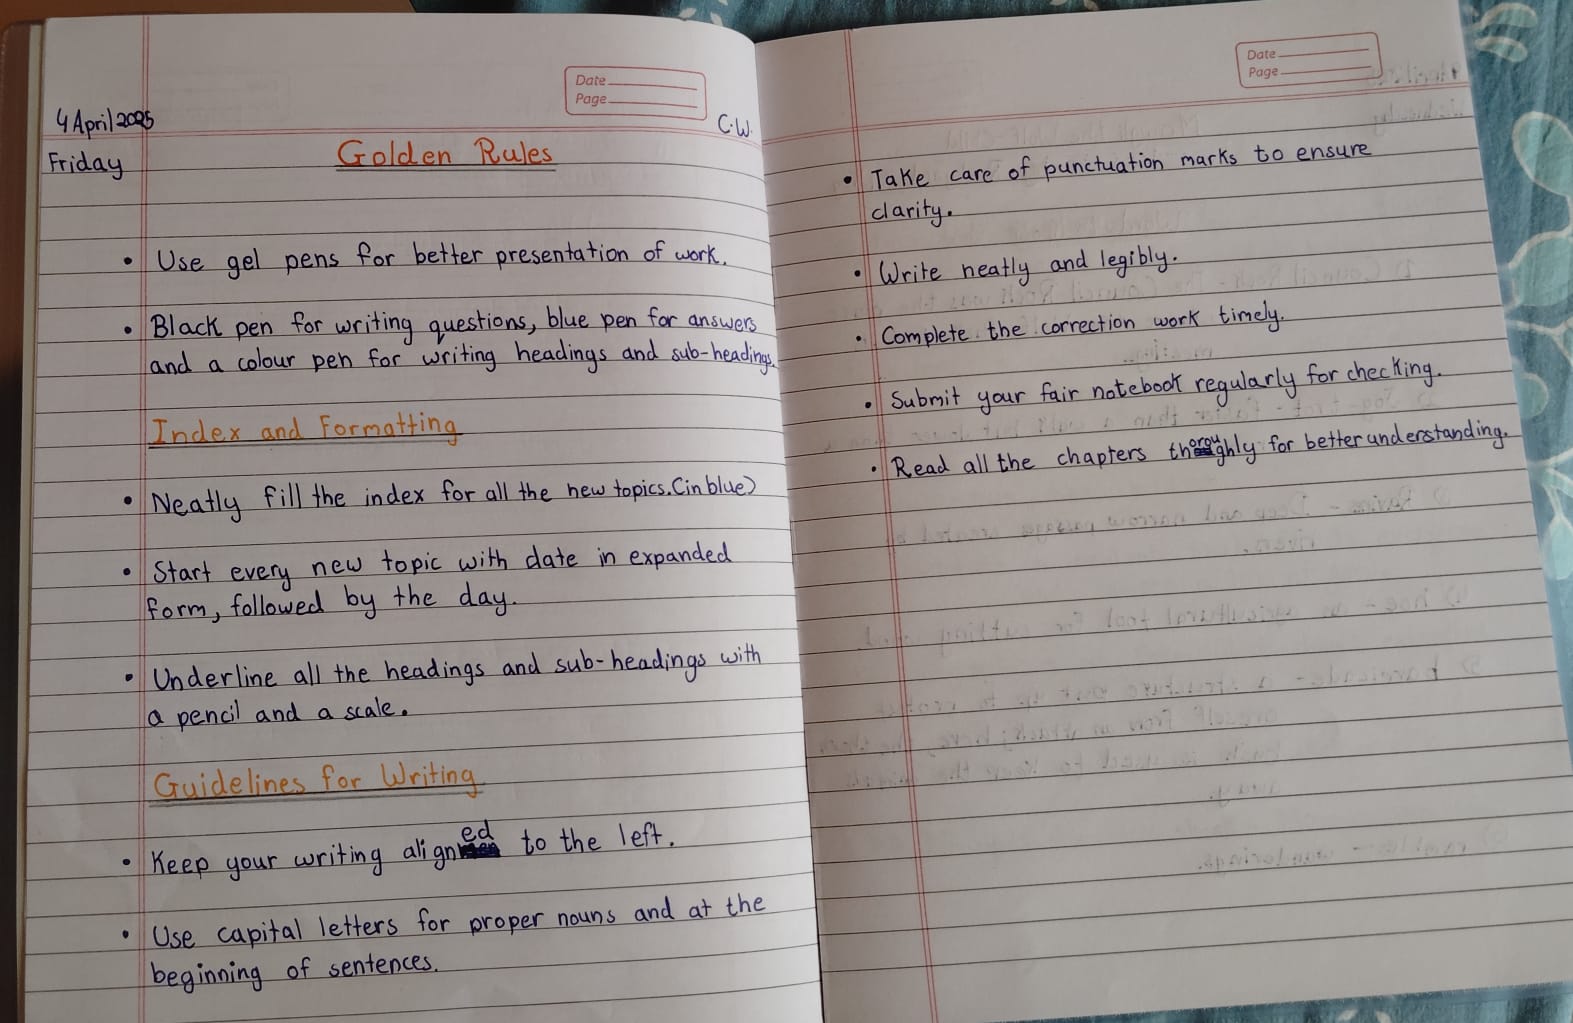 Date
Page
4 April 2025
C.W.
Friday
Golden Rules
• Use gel pens for better presentation of work.
• Black pen for writing questions, blue pen for answers
and a colour pen for writing headings and sub-headings.
Index and Formatting
• Neatly fill the index for all the new topics. (in blue)
• Start every new topic with date in expanded
form, followed by the day.
• Underline all the headings and sub-headings with
a pencil and a scale.
Guidelines for Writing
• Keep your writing aligned to the left.
• Use capital letters for proper nouns and at the
beginning of sentences.
Date
Page
• Take care of punctuation marks to ensure
clarity.
• Write neatly and legibly.
• Complete the correction work timely.
• Submit your fair notebook regularly for checking.
• Read all the chapters thoroughly for better understanding.